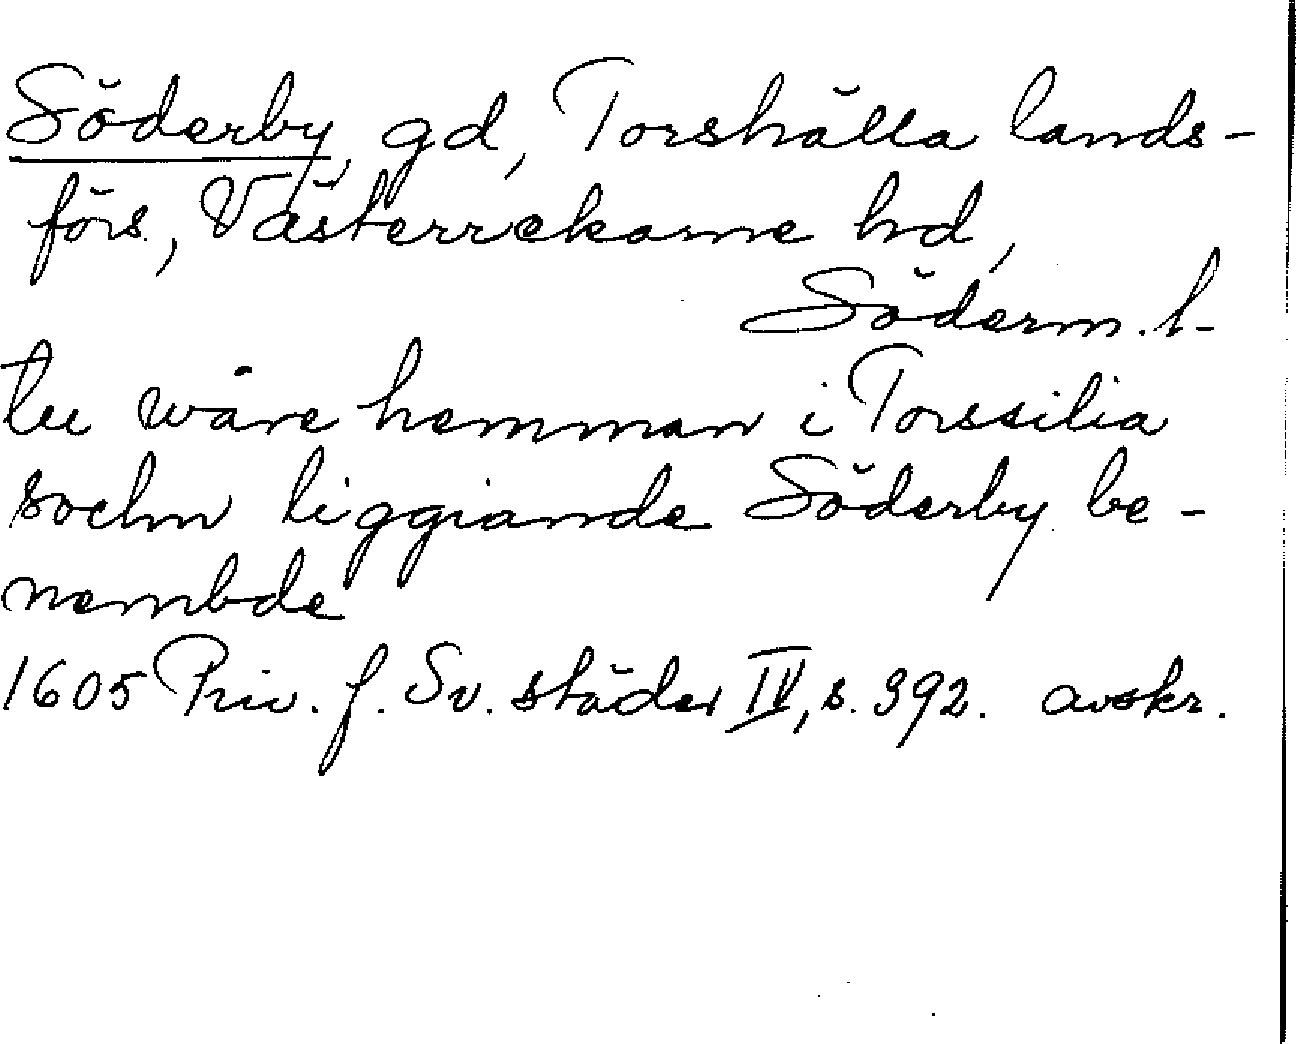 Söderby, gd, Torshälla lands-
förs., Västerrekarne hd,
Söderm. l-
tu wåre hemman i Torssilia
sochn liggiande Söderby be-
nembde
1605 Priv. f. Sv. städer IV, s. 392. avskr.